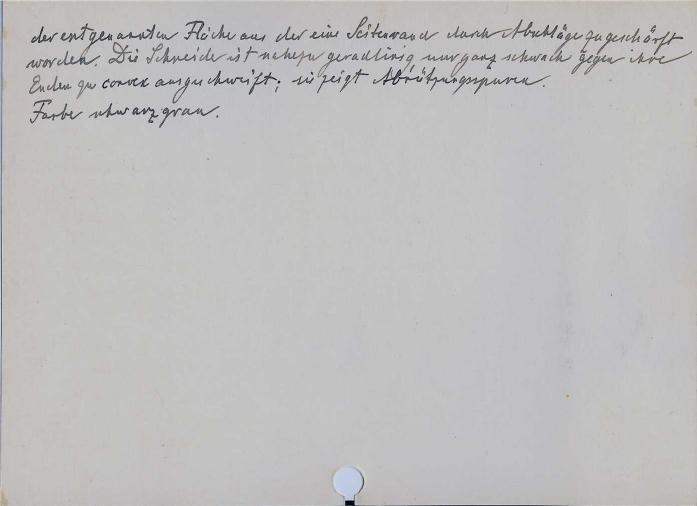 der erstgenannten Fläche aus der eine Seitenrand durch Abschläge zugeschärft
worden. Die Schneide ist nahezu geradlinig nur ganz schwach gegen ihre
Enden zu convex ausgeschweift; sie zeigt Abnützungsspuren.
Farbe schwarzgrau.